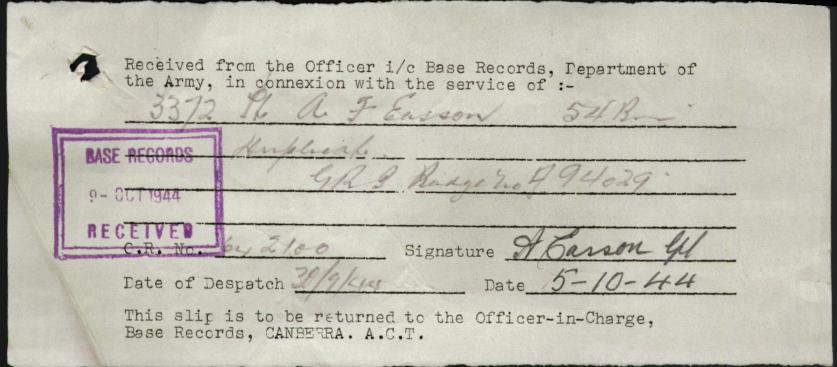 Received from the Officer i/c Base Records, Department of
the Army, in connexion with the service of :-
3372 A F Easson 54 Bn
BASE RECORDS
9 - OCT 1944
RECEIVED
Duplicate
GRS Badge No A 94029
C.R. No. 2100 Signature A Easson
Date of Despatch 30/9/44 Date 5-10-44
This slip is to be returned to the Officer-in-Charge,
Base Records, CANBERRA. A.C.T.